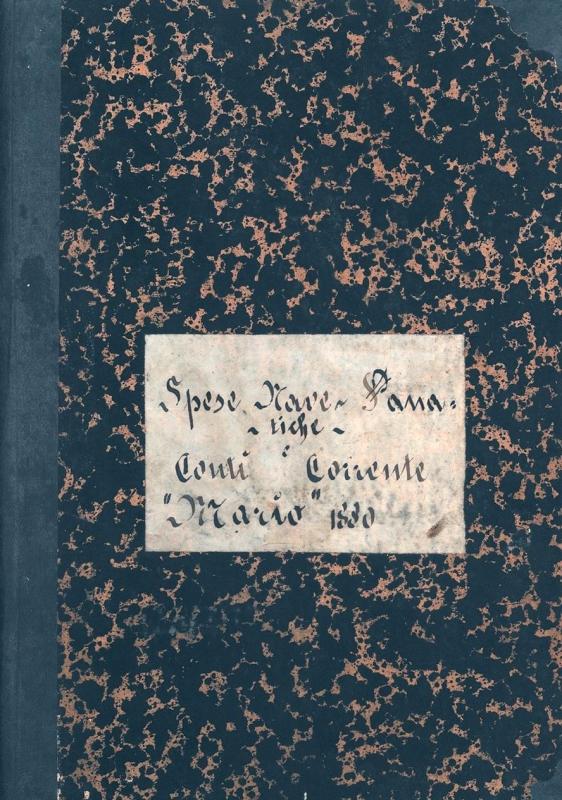 Spese Nave ~ Pana=
~ tiche ~
e
Conti Corrente
"Mario" 1880